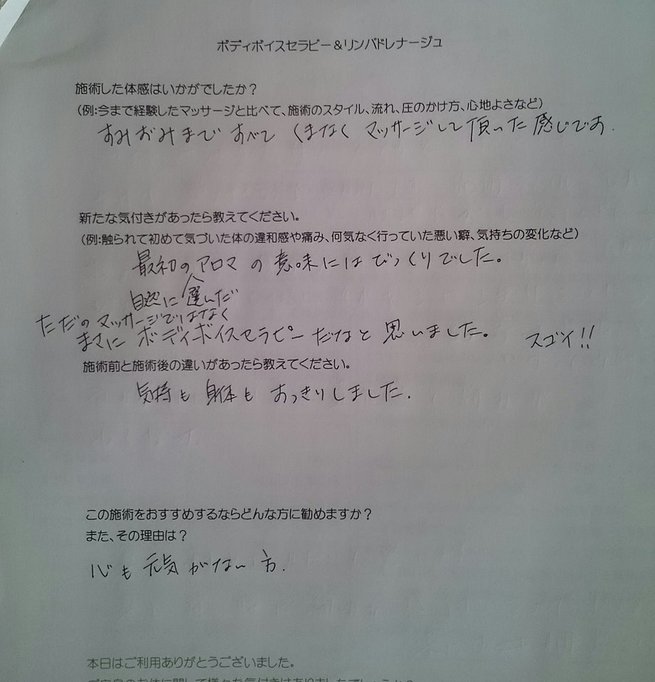 ボディボイスセラピー＆リンパドレナージュ
施術した体感はいかがでしたか？
(例：今まで経験したマッサージと比べて、施術のスタイル、流れ、圧のかけ方、心地よさなど)
すみずみまで すべて くまなく マッサージして頂いた感じです.
新たな気付きがあったら教えてください。
(例：触られて初めて気づいた体の違和感や痛み、何気なく行っていた悪い癖、気持ちの変化など)
最初のアロマの意味にはびっくりでした。
自然に選んだ
ただのマッサージではなく
まさに ボディボイスセラピーだなと思いました。 スゴイ!!
施術前と施術後の違いがあったら教えてください。
気持も 身体も すっきりしました.
この施術をおすすめするならどんな方に勧めますか？
また、その理由は？
心も 元気がない 方.
本日はご利用ありがとうございました。